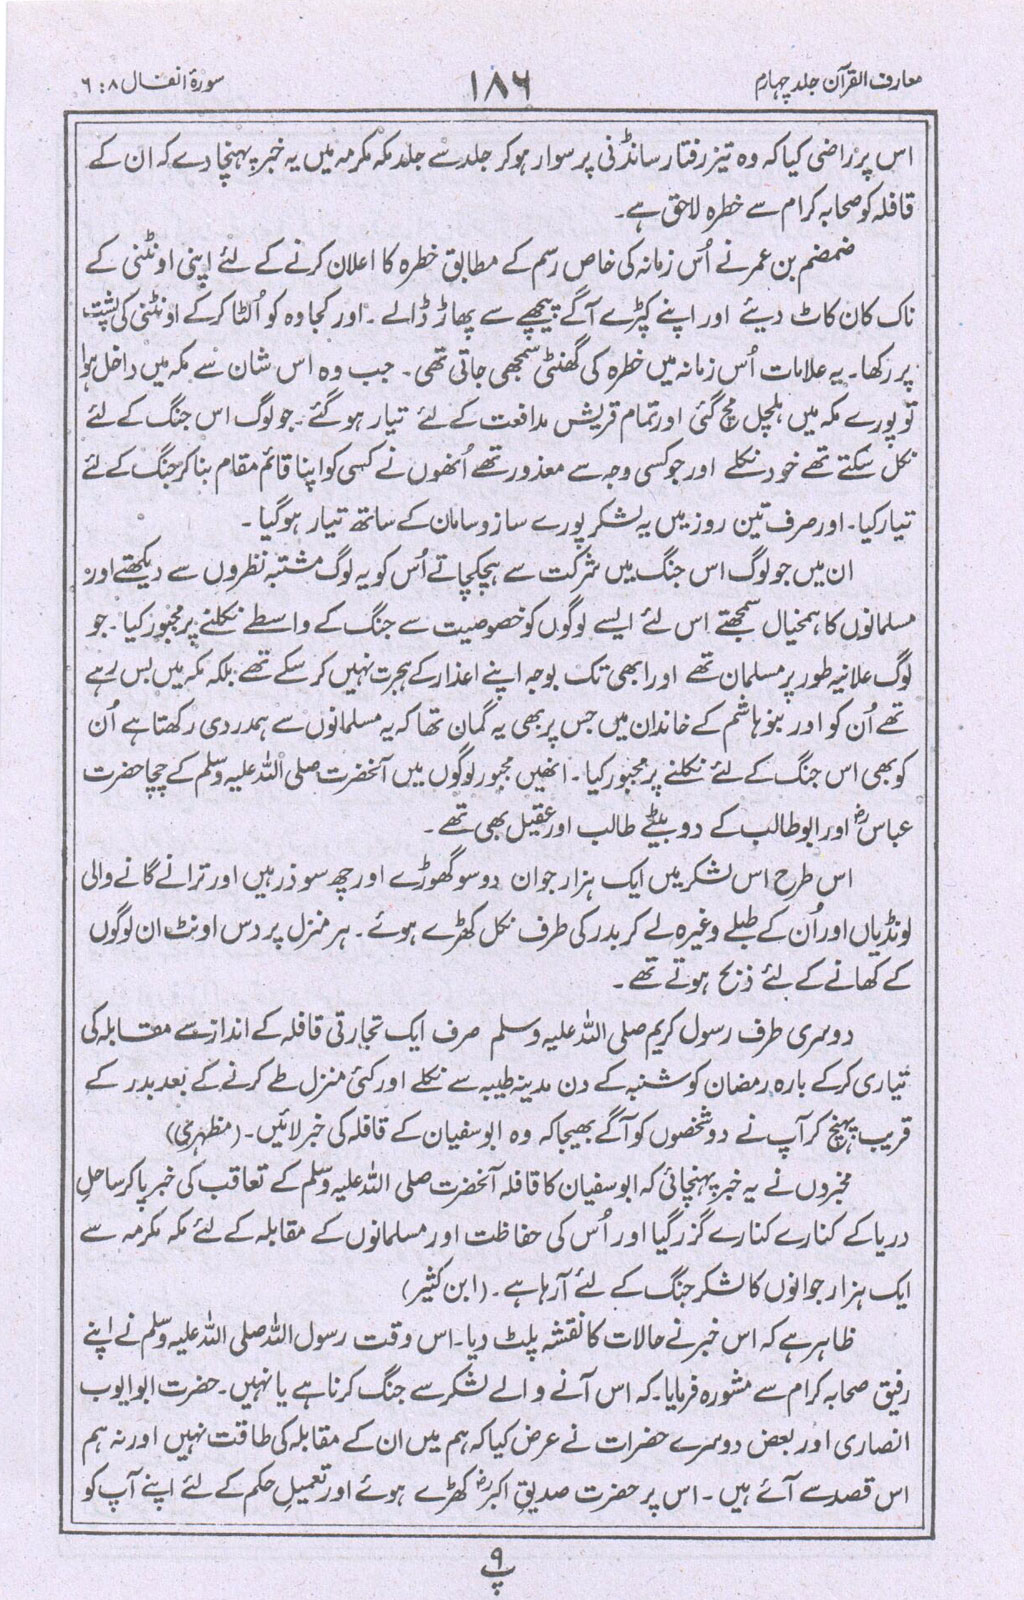 معارف القرآن جلد چہارم
۱۸۶
سورۂ انفال ۸ : ۶
اس پر راضی کیا کہ وہ تیز رفتار سانڈنی پر سوار ہوکر جلد سے جلد مکہ مکرمہ میں یہ خبر پہنچا دے کہ ان کے
قافلہ کو صحابہ کرام سے خطرہ لاحق ہے۔
ضمضم بن عمر نے اُس زمانہ کی خاص رسم کے مطابق خطرہ کا اعلان کرنے کے لئے اپنی اونٹنی کے
ناک کان کاٹ دیئے اور اپنے کپڑے آگے پیچھے سے پھاڑ ڈالے۔ اور کجاوہ کو اُلٹا کرکے اونٹنی کی پشت
پر رکھا۔ یہ علامات اُس زمانہ میں خطرہ کی گھنٹی سمجھی جاتی تھی۔ جب وہ اس شان سے مکہ میں داخل ہوا
تو پورے مکہ میں ہلچل مچ گئی اور تمام قریش مدافعت کے لئے تیار ہوگئے۔ جو لوگ اس جنگ کے لئے
نکل سکتے تھے خود نکلے اور جو کسی وجہ سے معذور تھے اُنھوں نے کسی کو اپنا قائم مقام بناکر جنگ کے لئے
تیار کیا۔ اور صرف تین روز میں یہ لشکر پورے ساز و سامان کے ساتھ تیار ہوگیا۔
ان میں جو لوگ اس جنگ میں شرکت سے ہچکچاتے اُس کو یہ لوگ مشتبہ نظروں سے دیکھتے اور
مسلمانوں کا ہمخیال سمجھتے اس لئے ایسے لوگوں کو خصوصیت سے جنگ کے واسطے نکلنے پر مجبور کیا۔ جو
لوگ علانیہ طور پر مسلمان تھے اور ابھی تک بوجہ اپنے اعذار کے ہجرت نہیں کر سکے تھے بلکہ مکہ میں بس رہے
تھے اُن کو اور بنو ہاشم کے خاندان میں جس پر بھی یہ گمان تھا کہ یہ مسلمانوں سے ہمدردی رکھتا ہے اُن
کو بھی اس جنگ کے لئے نکلنے پر مجبور کیا۔ انھیں مجبور لوگوں میں آنحضرت صلی اللہ علیہ وسلم کے چچا حضرت
عباسؓ اور ابوطالب کے دو بیٹے طالب اور عقیل بھی تھے۔
اس طرح اس لشکر میں ایک ہزار جوان دو سو گھوڑے اور چھ سو ذرہیں اور ترانے گانے والی
لونڈیاں اور اُن کے طبلے وغیرہ لے کر بدر کی طرف نکل کھڑے ہوئے۔ ہر منزل پر دس اونٹ ان لوگوں
کے کھانے کے لئے ذبح ہوتے تھے۔
دوسری طرف رسول کریم صلی اللہ علیہ وسلم صرف ایک تجارتی قافلہ کے انداز سے مقابلہ کی
تیاری کرکے بارہ رمضان کو شنبہ کے دن مدینہ طیبہ سے نکلے اور کئی منزل طے کرنے کے بعد بدر کے
قریب پہنچ کر آپ نے دو شخصوں کو آگے بھیجا کہ وہ ابوسفیان کے قافلہ کی خبر لائیں۔ (مظہری)
مخبروں نے یہ خبر پہنچائی کہ ابوسفیان کا قافلہ آنحضرت صلی اللہ علیہ وسلم کے تعاقب کی خبر پاکر ساحلِ
دریا کے کنارے کنارے گزر گیا اور اُس کی حفاظت اور مسلمانوں کے مقابلہ کے لئے مکہ مکرمہ سے
ایک ہزار جوانوں کا لشکر جنگ کے لئے آرہا ہے۔ (ابن کثیر)
ظاہر ہے کہ اس خبر نے حالات کا نقشہ پلٹ دیا۔ اس وقت رسول اللہ صلی اللہ علیہ وسلم نے اپنے
رفیق صحابہ کرام سے مشورہ فرمایا۔ کہ اس آنے والے لشکر سے جنگ کرنا ہے یا نہیں۔ حضرت ابوایوب
انصاری اور بعض دوسرے حضرات نے عرض کیا کہ ہم میں ان کے مقابلہ کی طاقت نہیں اور نہ ہم
اس قصد سے آئے ہیں۔ اس پر حضرت صدیق اکبرؓ کھڑے ہوئے اور تعمیلِ حکم کے لئے اپنے آپ کو
۹
پ